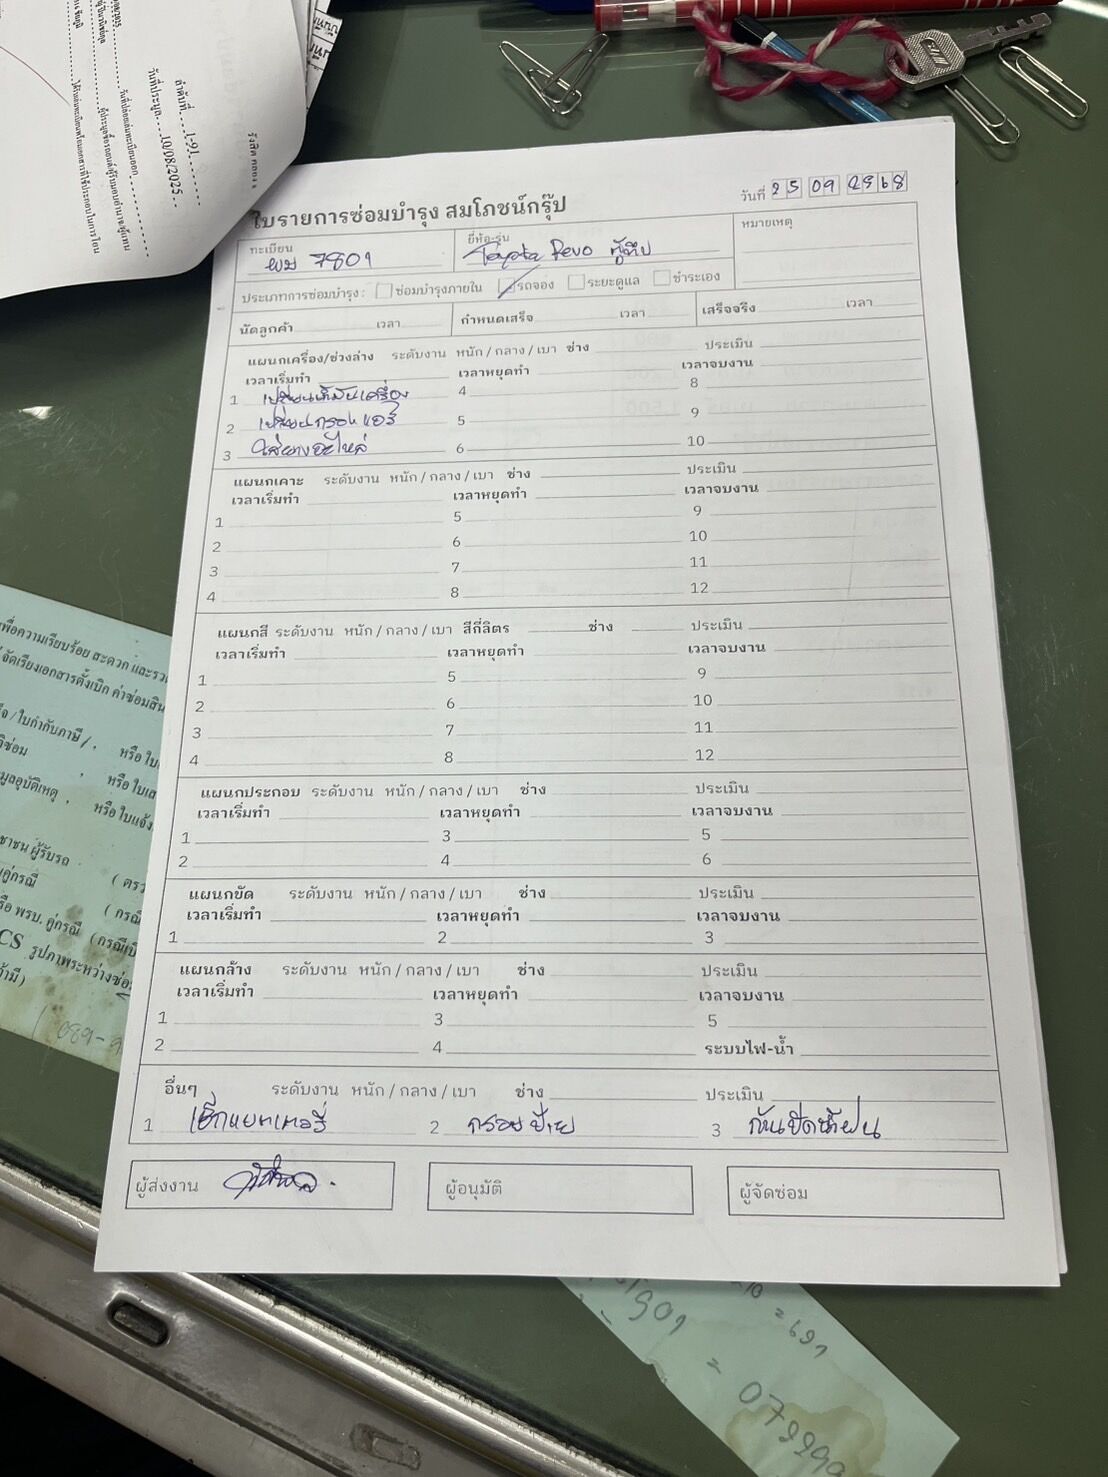 ลำดับที่ 1-91
วันที่ประมูล 10/08/2025
ใบรายการซ่อมบำรุง สมโภชน์กรุ๊ป
วันที่ 25 09 2568
ทะเบียน 7801
ยี่ห้อ-รุ่น Toyota Revo ตู้ทึบ
หมายเหตุ
ประเภทการซ่อมบำรุง : ซ่อมบำรุงภายใน รถจอง ระยะดูแล ชำระเอง
นัดลูกค้า เวลา กำหนดเสร็จ เวลา เสร็จจริง เวลา
แผนกเครื่อง/ช่วงล่าง ระดับงาน หนัก / กลาง / เบา ช่าง ประเมิน
เวลาเริ่มทำ เวลาหยุดทำ เวลาจบงาน
1 เปลี่ยนน้ำมันเครื่อง 4 8
2 เปลี่ยนกรองแอร์ 5 9
3 ใส่ยางอะไหล่ 6 10
แผนกเคาะ ระดับงาน หนัก / กลาง / เบา ช่าง ประเมิน
เวลาเริ่มทำ เวลาหยุดทำ เวลาจบงาน
1 5 9
2 6 10
3 7 11
4 8 12
แผนกสี ระดับงาน หนัก / กลาง / เบา สีกี่ลิตร ช่าง ประเมิน
เวลาเริ่มทำ เวลาหยุดทำ เวลาจบงาน
1 5 9
2 6 10
3 7 11
4 8 12
แผนกประกอบ ระดับงาน หนัก / กลาง / เบา ช่าง ประเมิน
เวลาเริ่มทำ เวลาหยุดทำ เวลาจบงาน
1 3 5
2 4 6
แผนกขัด ระดับงาน หนัก / กลาง / เบา ช่าง ประเมิน
เวลาเริ่มทำ เวลาหยุดทำ เวลาจบงาน
1 2 3
แผนกล้าง ระดับงาน หนัก / กลาง / เบา ช่าง ประเมิน
เวลาเริ่มทำ เวลาหยุดทำ เวลาจบงาน
1 3 5
2 4 ระบบไฟ-น้ำ
อื่นๆ ระดับงาน หนัก / กลาง / เบา ช่าง ประเมิน
1 เช็กแบตเตอรี่ 2 กรอบป้าย 3 ก้านปัดน้ำฝน
ผู้ส่งงาน ผู้อนุมัติ ผู้จัดซ่อม
เพื่อความเรียบร้อย สะดวก และรวด
จัดเรียงเอกสารตั้งเบิก ค่าซ่อมสิน
/ ใบกำกับภาษี / , หรือ ใบ
หรือ ใบเส
มูลอุบัติเหตุ , หรือ ใบแจ้ง
ชาชน ผู้รับรถ ( ตรว
คู่กรณี ( กรณี
รือ พรบ. คู่กรณี (กรณีเป็
CS รูปภาพระหว่างซ่อ
ถ้ามี )
089-
= 697